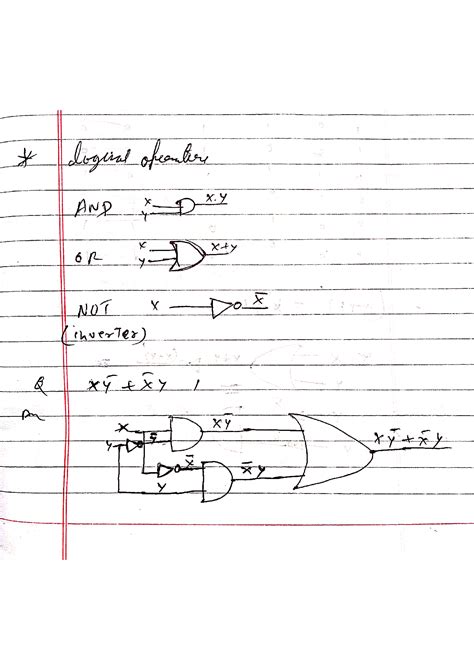 * Logical operations
AND x y x.y
OR x y x+y
NOT x x̄
(inverter)
Q xȳ + x̄y
x xȳ
y ȳ xȳ + x̄y
x̄ x̄y
y